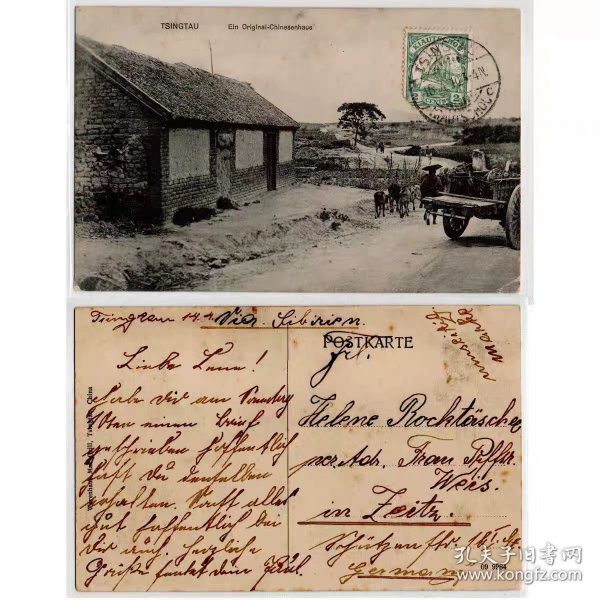 TSINGTAU
Ein Original-Chinesenhaus
KIAUTSCHOU
Tsingtau 14.4. Via Sibirien.
POSTKARTE
umseitig
Marke
Frl.
Liebe Lene!
Habe dir am Sonntag
den einen Brief
geschrieben hoffentlich
hast Du denselben
erhalten. Sonst alles
gut hoffentlich bei
Dir auch. Herzliche
Grüße sendet dein Paul.
Helene
per Adr. Frau
Weis.
in Zeitz.
Schützenstr.
Germany
09
孔夫子旧书网
www.kongfz.com